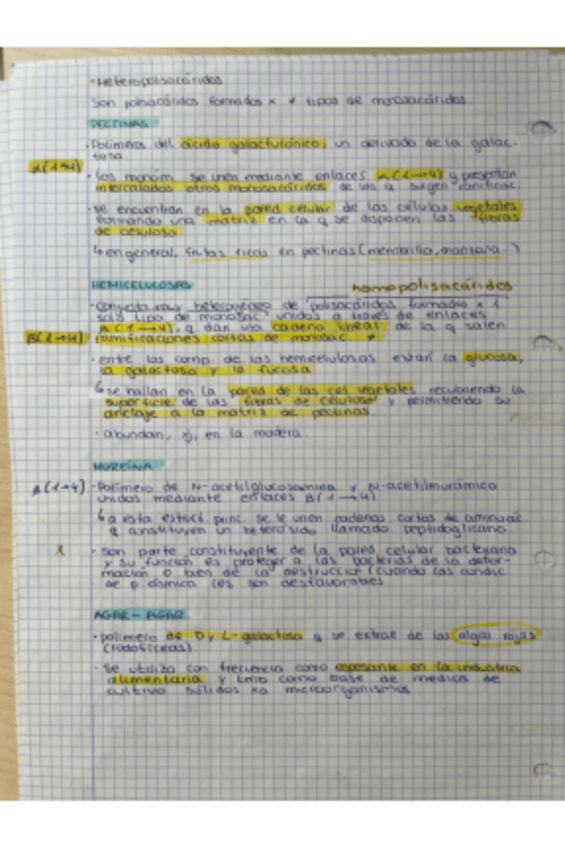 · Heteropolisacáridos
Son polisacáridos formados x ≠ tipos de monosacáridos
PECTINAS
· Polímeros del ácido galacturónico, un derivado de la galac-
tosa
α(1→4)
· los monóm. se unen mediante enlaces α(1→4) y presentan
intercalados otros monosacáridos de los q surgen ramificac.
· se encuentran en la pared celular de las células vegetales
formando una matriz en la q se disponen las fibras
de celulosa
↳ en general, frutas ricas en pectinas (membrillo, manzana..)
HEMICELULOSAS
homopolisacáridos
· conjunto muy heterogéneo de polisacáridos formados x 1
solo tipo de monosac. unidos a través de enlaces
β(1→4)
β(1→4), q dan una cadena lineal de la q salen
ramificaciones cortas de monosac.
· entre los comp. de las hemicelulosas están la glucosa,
la galactosa y la fucosa
↳ se hallan en la pared de las cél. vegetales recubriendo la
superficie de las fibras de celulosa y permitiendo su
anclaje a la matriz de pectinas
· abundan, xj, en la madera
MUREÍNA
β(1→4)
· Polímero de N-acetilglucosamina y N-acetilmurámico
unidos mediante enlaces β(1→4)
↳ a esta estruct. princ. se le unen cadenas cortas de aminoác
q constituyen un heterósido llamado peptidoglicano
X
· son parte constituyente de la pared celular bacteriana
y su función es proteger a las bacterias de la defor-
mación o bien de la destrucción (cuando las condic.
de p osmótica les son desfavorables
AGAR - AGAR
· polímero de D y L-galactosa q se extrae de las algas rojas
(rodofíceas)
· se utiliza con frecuencia como espesante en la industria
alimentaria y como base de medios de
cultivo sólidos xa microorganismos